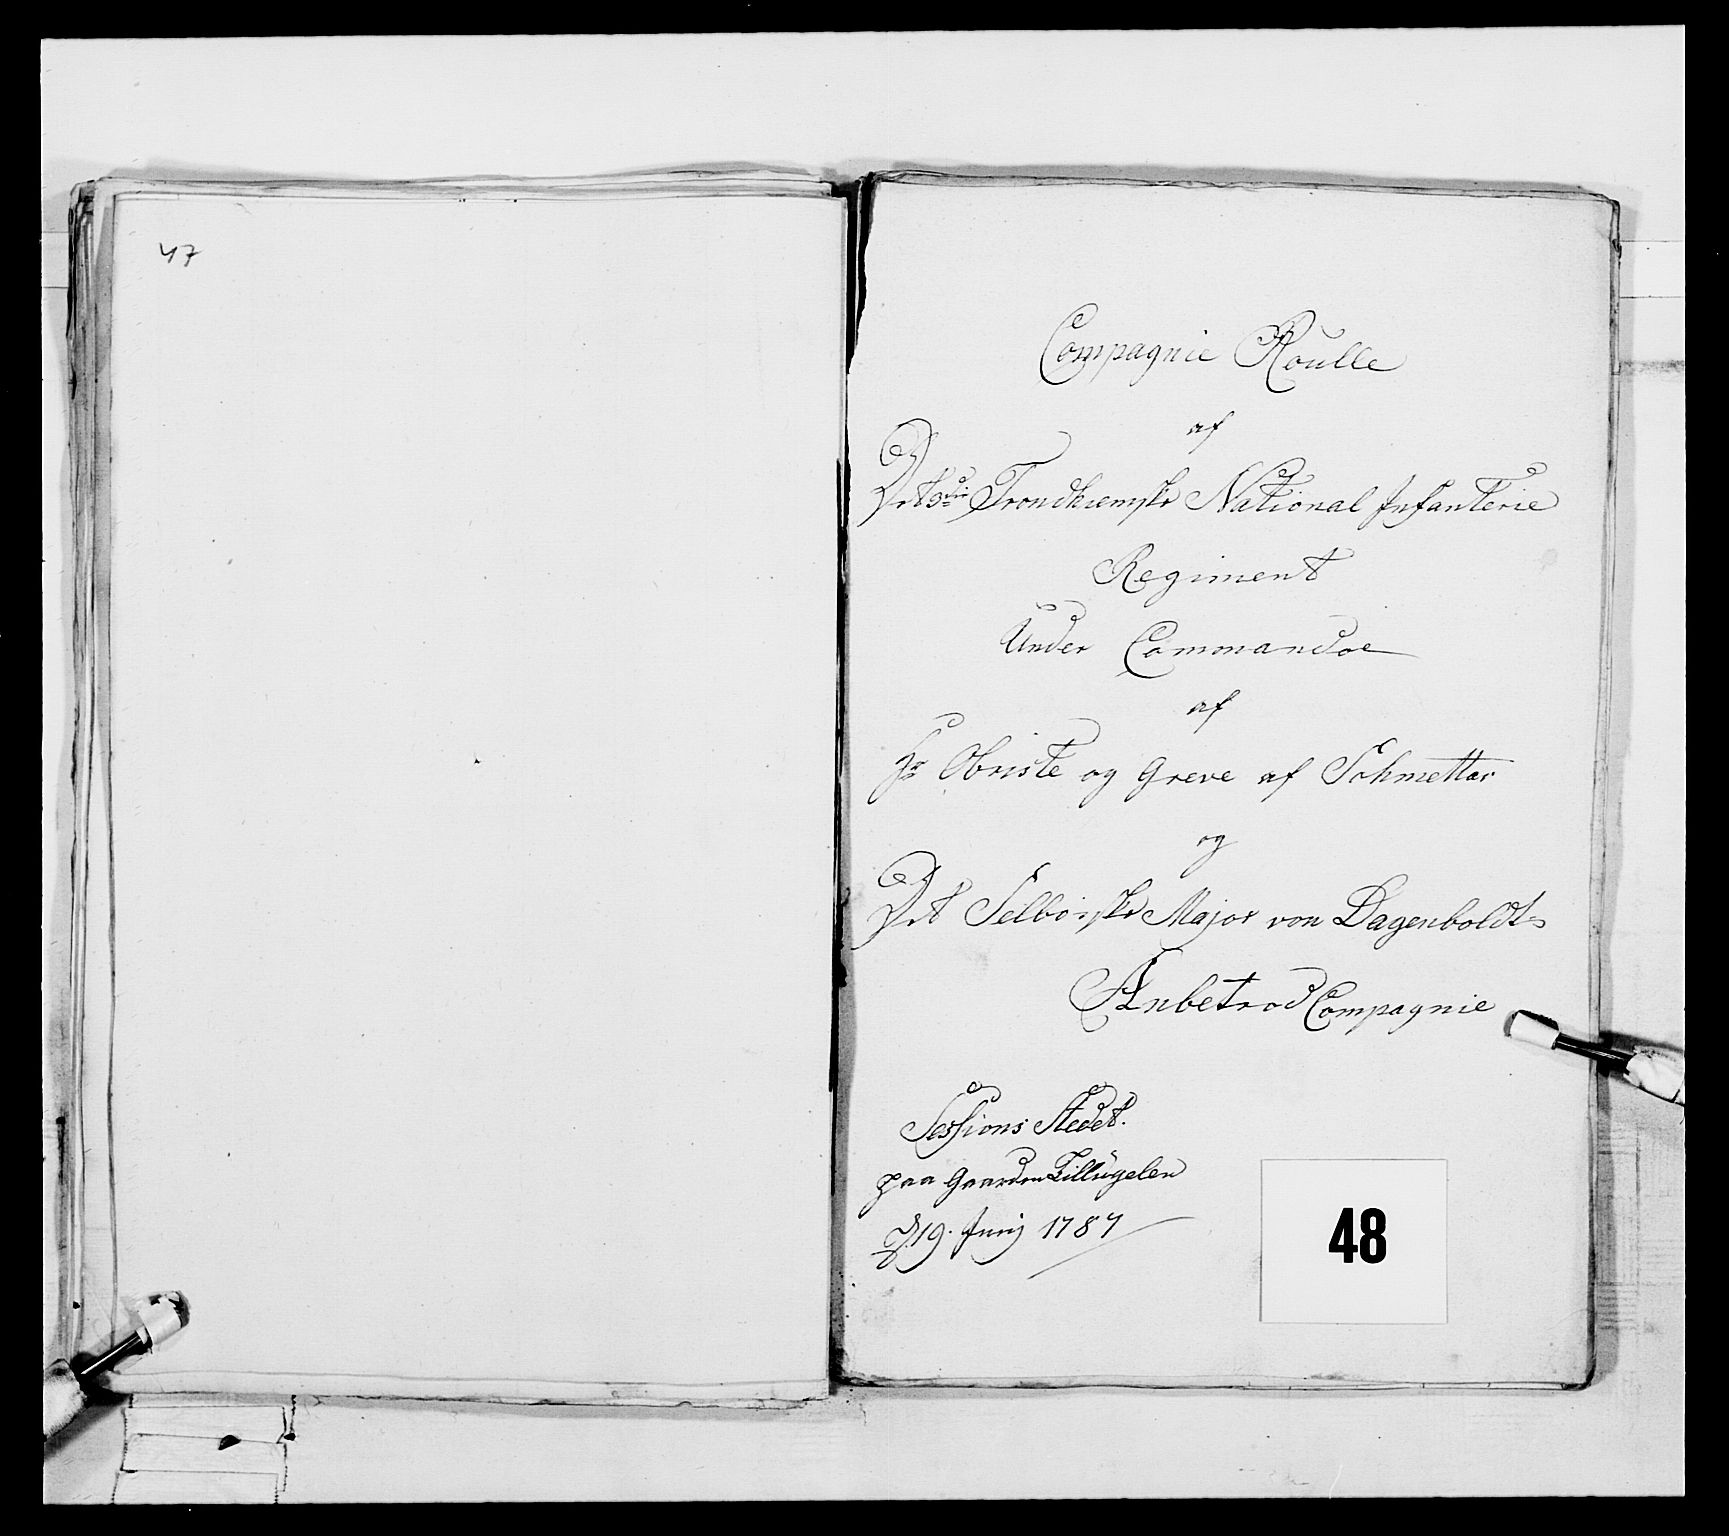 47
Compagnie Roulle
af
Det 3die Trondhiemske National Infanterie
Regiment
Under Commandoe
af
Hr Obriste og Greve af Schmettar
og
Det Selboiske Major von Dagenboldts
Anbetrod Compagnie
Sessions Stedet.
paa Gaarden Lillugelen
d. 19. Junij 1787
48